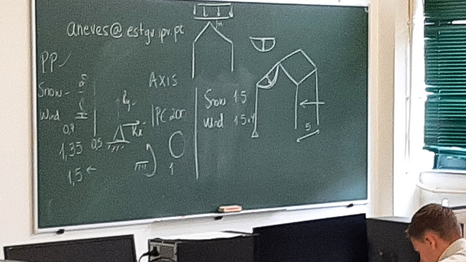 aneves@estgv.ipv.pt
PP
Snow
Wind
0,9
1,35
0,5
1,5
AXIS
IPE 200
1
Snow 1.5
Wind
5